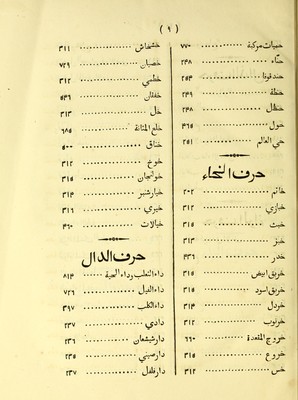 ( ٩ )
حميات مركبة ٧٧٠
حنّاء ٢٤٨
حندقوقا ٢٥٤
حنطة ٢٤٩
حنظل ٢٤٨
حول ٤٦٥
حي العالم ٢٥١
حرف الخاء
خاتم ٢٠٢
خبازي ٣١٢
خبث ٣١٥
خبز ٣١٣
خدر ٤٣٦
خربق ابيض ٣١٥
خربق اسود ٣١٥
خردل ٣١٤
خرنوب ٣١٢
خروج المقعدة ٦٦٠
خروع ٣١٥
خس ٣١٢
خشخاش ٣١١
خصيان ٧٢٩
خطمي ٣١٢
خفقان ٥٤٦
خل ٣١٣
خلع المثانة ٦٨٥
خناق ٥٠٠
خوخ ٣١٢
خولنجان ٣١٥
خيارشنبر ٣١٤
خيري ٣١٦
خيالات ٤٦٠
حرف الدال
داء الثعلب وداء الحية ٨١٤
داء الفيل ٧٢٦
داء الكلب ٣٩٧
دادي ٢٣٧
دارشيشعان ٢٣٦
دارصيني ٢٣٥
دارفلفل ٢٣٧